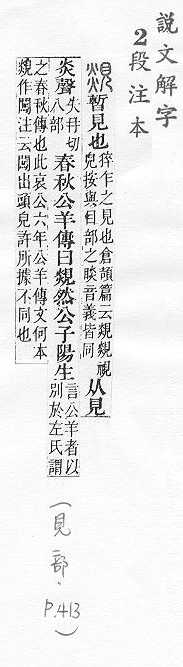 說文解字
2段注本
覢暫見也猝乍之見也倉頡篇云覢覢視
皃按與目部之睒音義皆同从見
炎聲失冉切八部春秋公羊傳曰覢然公子陽生言公羊者以
別於左氏謂
之春秋傳也此哀公六年公羊傳文何本
覢作闖注云闖出頭皃許所據不同也
(見部.P.413)